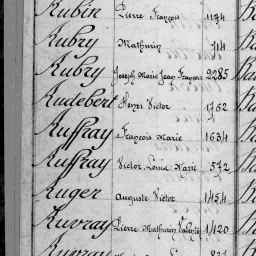 Rubin Pierre François 1194
Rubry Mathurin 714
Rubry Joseph Marie Jean François 2285
Rudebert Victor 1762
Ruffray François Marie 1634
Ruffray Victor Louis Marie 572
Ruger Auguste Victor 1454
Ruvray Pierre Mathurin 1120
Ruvray